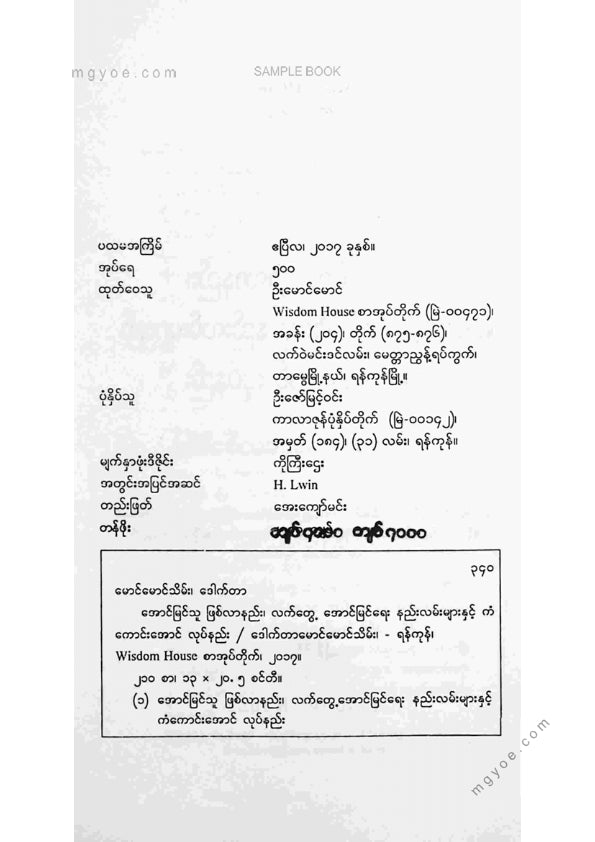 mgyoe.com
SAMPLE BOOK
ပထမအကြိမ် ဧပြီလ၊ ၂၀၁၇ ခုနှစ်။
အုပ်ရေ ၅၀၀
ထုတ်ဝေသူ ဦးမောင်မောင်
Wisdom House စာအုပ်တိုက် (မြဲ-၀၀၄၇၁)၊
အခန်း (၂၀၄)၊ တိုက် (၈၇၅-၈၇၆)၊
လက်ဝဲမင်းဒင်လမ်း၊ မေတ္တာညွန့်ရပ်ကွက်၊
တာမွေမြို့နယ်၊ ရန်ကုန်မြို့။
ပုံနှိပ်သူ ဦးဇော်မြင့်ဝင်း
ကာလာဇုန်ပုံနှိပ်တိုက် (မြဲ-၀၀၁၄၂)၊
အမှတ် (၁၈၄)၊ (၃၁) လမ်း၊ ရန်ကုန်။
မျက်နှာဖုံးဒီဇိုင်း ကိုကြီးဌေး
အတွင်းအပြင်အဆင် H. Lwin
တည်းဖြတ် အေးကျော်မင်း
တန်ဖိုး ကျပ် ၇၀၀၀
၃၄၀
မောင်မောင်သိမ်း၊ ဒေါက်တာ
အောင်မြင်သူ ဖြစ်လာနည်း၊ လက်တွေ့ အောင်မြင်ရေး နည်းလမ်းများနှင့် ကံ
ကောင်းအောင် လုပ်နည်း / ဒေါက်တာမောင်မောင်သိမ်း၊ - ရန်ကုန်၊
Wisdom House စာအုပ်တိုက်၊ ၂၀၁၇။
၂၁၀ စာ၊ ၁၃ × ၂၀. ၅ စင်တီ။
(၁) အောင်မြင်သူ ဖြစ်လာနည်း၊ လက်တွေ့အောင်မြင်ရေး နည်းလမ်းများနှင့်
ကံကောင်းအောင် လုပ်နည်း
mgyoe.com